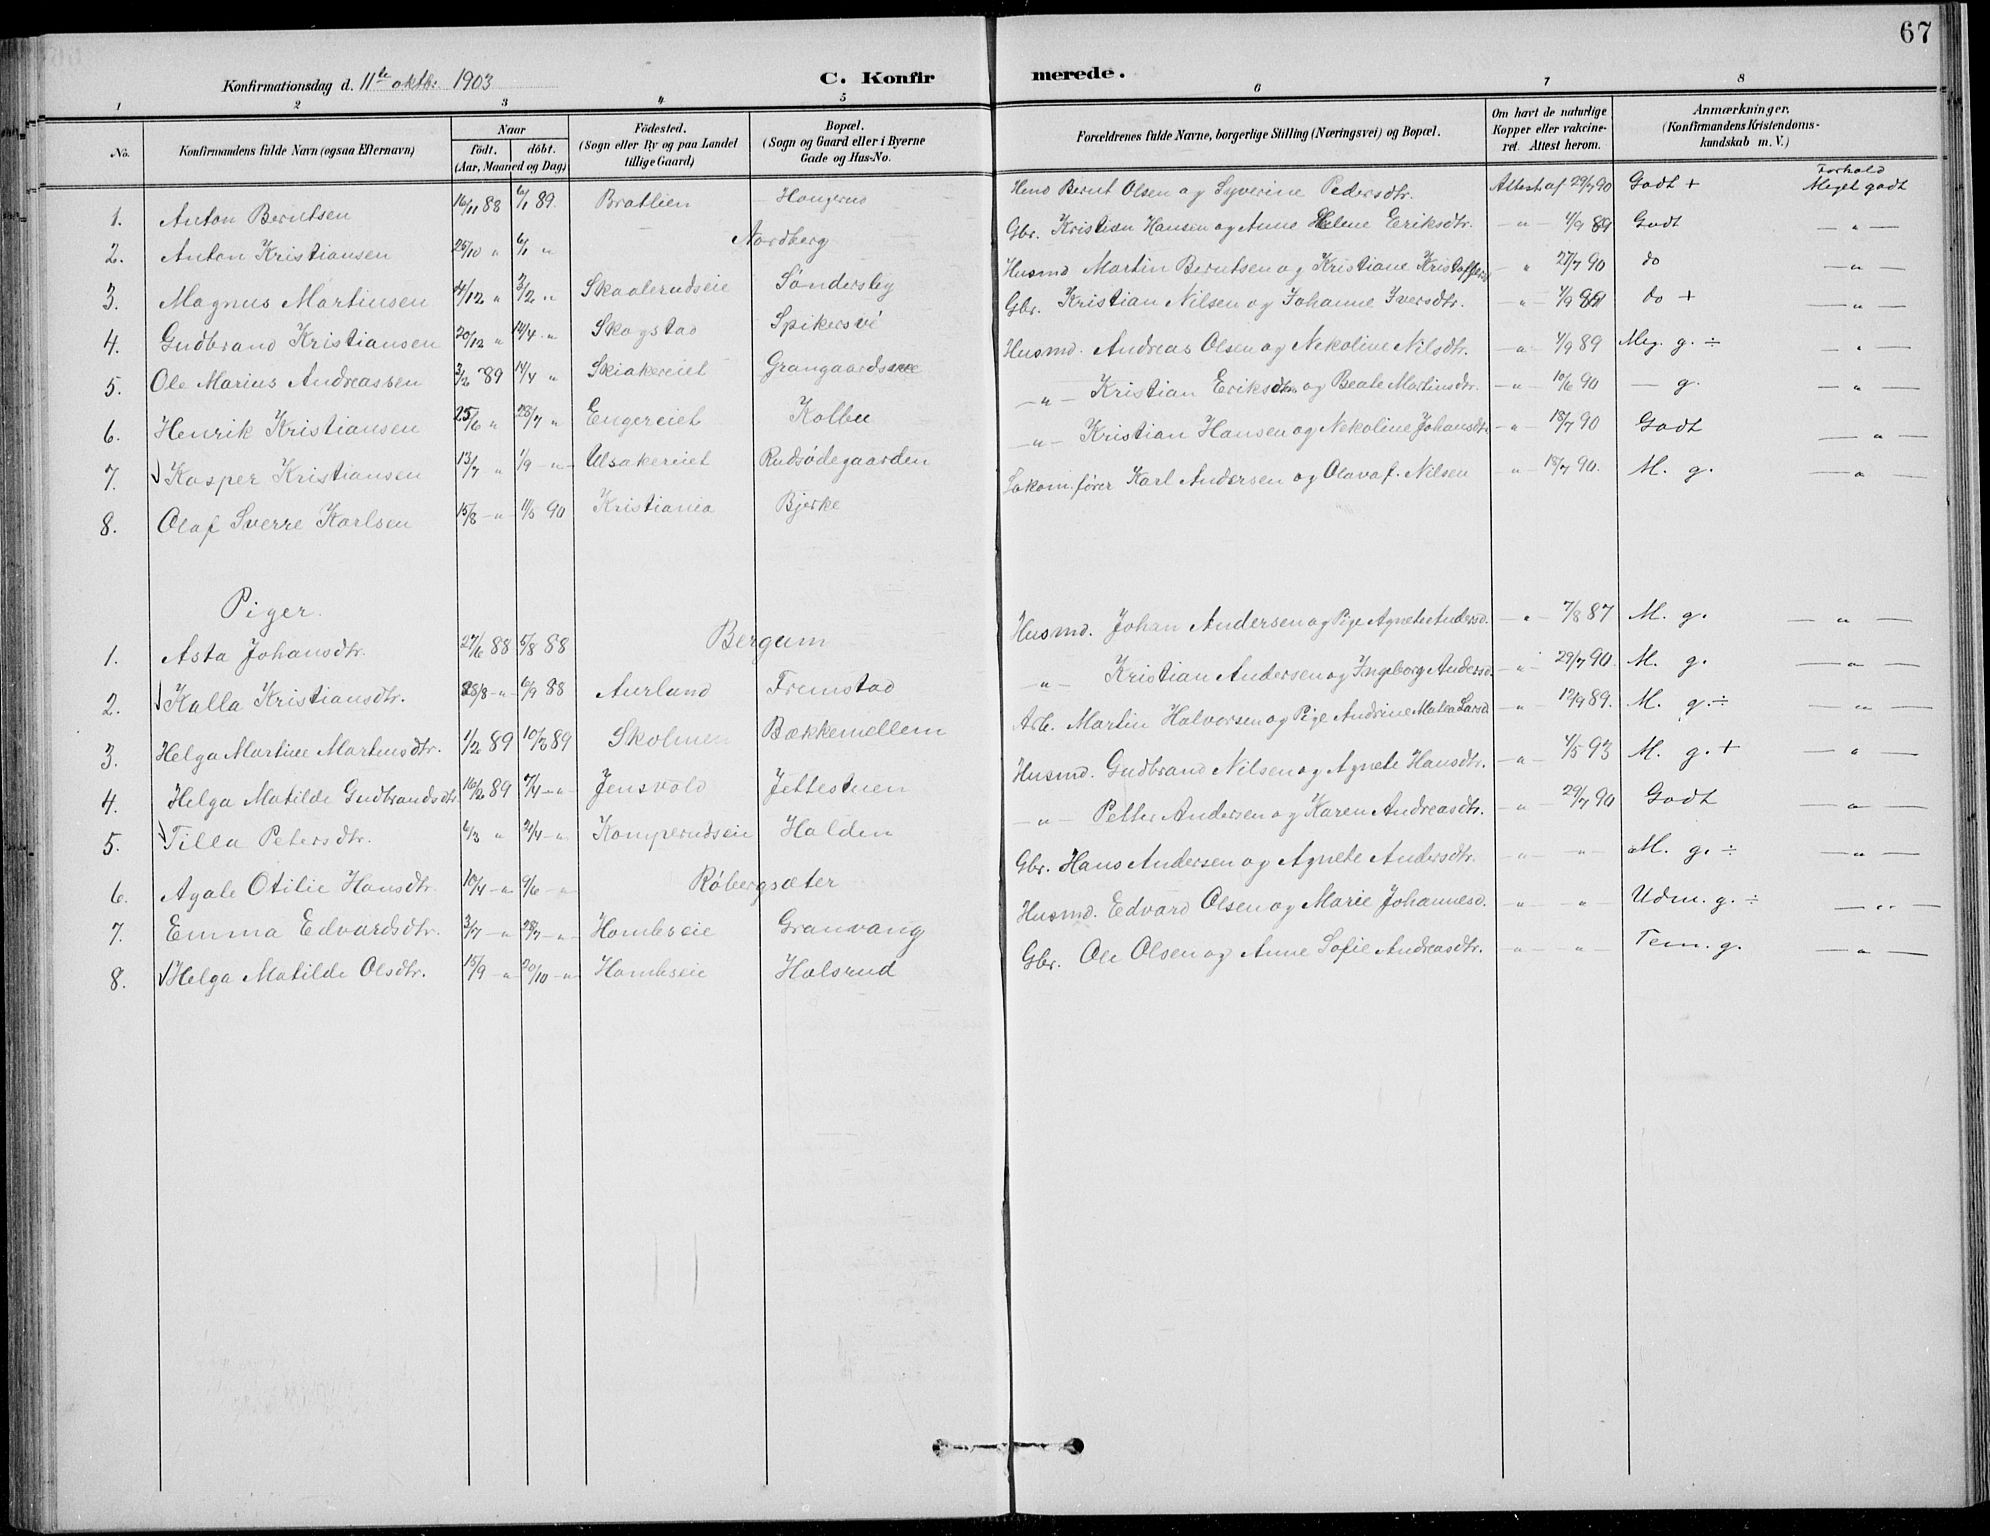 67
Konfirmationsdag d. 11te oktb. 1903 C. Konfir merede.
1 2 3 4 5 6 7 8
No. Konfirmandens fulde Navn (ogsaa Efternavn) Naar födt. döbt. (Aar, Maaned og Dag) Födested. (Sogn eller By og paa Landet tillige Gaard) Bopæl. (Sogn og Gaard eller i Byerne Gade og Hus-No. Forældrenes fulde Navne, borgerlige Stilling (Næringsvei) og Bopæl. Om havt de naturlige Kopper eller vakcineret. Attest herom. Anmærkninger. (Konfirmandens Kristendomskundskab m. V.) Forhold
1. Anton Berntsen 16/11 88 6/1 89. Bratlien Haugerud Bernt Olsen og Syverine Pedersdtr. Attest af 29/7 90 Godt + Meget godt
2. Anton Kristiansen 25/10 " 6/1 " Nordberg Gbr. Kristian Hansen og Anne Helene Eriksdtr. — " — 4/9 89 Godt — " —
3. Magnus Martinsen 4/12 " 3/2 " Skaalerudseie Söndersby Husmd Martin Berntsen og Kristiane — " 27/7 90 do — " —
4. Gudbrand Kristiansen 20/12 " 14/4 " Skogstad Gbr. Kristian Nilsen og Johanne Iversdtr. — " 4/9 89 do + — " —
5. Ole Marius Andreassen 3/2 89 14/4 " Skiakereiet Husmd. Andreas Olsen og Nekoline Nilsdtr. — " — 4/9 89 Meg. g. ÷ — " —
6. Henrik Kristiansen 25/6 " 28/7 " Engereiet Kolbu — " — Kristian og Beate Martinsdtr. — " — 10/6 90 — g. — " —
7. Kasper Kristiansen 13/7 " 1/9 — " — Ulsakereiet Rudsödegaarden — " — Kristian Hansen og Nekoline Johansdtr — " — 18/7 90 Godt — " —
8. Olaf Sverre Karlsen 15/8 — " 11/5 90 Kristiania Bjerke Lokom.förer Karl Andersen og Olava f. Nilsen — " — 18/7 90. M. g. — " —
Piger.
1. Asta Johansdtr. 27/6 88 5/8 88 Bergum Husmd. Johan Andersen og Pige Agnete Andersd. — " — 7/8 87 M. g. — " —
2. Kalla Kristiansdtr. 28/8 — " 6/9 88 Aurlund Fremstad — " — Kristian Andersen og Ingeborg Andersd. — " — 29/7 90. M. g. — " —
3. Helga Martine Martinsdtr. 1/2 89 10/3 89 Skolmen Bækkemellem Arb. Martin Halvorsen og Pige Andrine Matea Larsd. — " 12/9 89. M. g. ÷ — " —
4. Helga Matilde Gudbrandsdtr 16/2 89 7/4 — " Jensvold Jettestuen Husmd. Gudbrand Nilsen og Agnete Hansdtr. — " — 4/5 93 M. g. + — " —
5. Tilla Petersdtr. 6/3 " 21/4 — " Kamperudseie Halden — " — Petter Andersen og Karen Andreasdtr. — " 29/7 90 Godt — " —
6. Agate Otilie Hansdtr. 10/4 — " 9/6 — " Röbergsæter Gbr. Hans Andersen og Agnete Andersdtr. " — " — M. g. ÷ — " —
7. Emma Edvardsdtr. 3/7 — " 28/7 — " — Hombseie Granvang Husmd. Edvard Olsen og Marie Johannesd. " — " — Udm. g. ÷ — " —
8. Helga Matilde Olsdtr. 15/9 — " 20/10 — " Hombseie Halsrud Gbr. Ole Olsen og Anne Sofie Andreasdtr. " — " — Tem. g. — " —